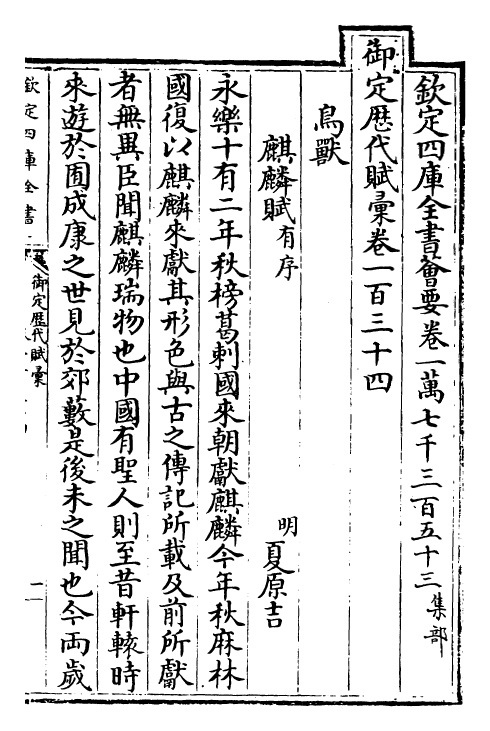 欽定四庫全書薈要卷一萬七千三百五十三集部
御定歷代賦彙卷一百三十四
鳥獸
麒麟賦有序
明夏原吉
永樂十有二年秋榜葛剌國來朝獻麒麟今年秋麻林
國復以麒麟來獻其形色與古之傳記所載及前所獻
者無異臣聞麒麟瑞物也中國有聖人則至昔軒轅時
來遊於囿成康之世見於郊藪是後未之聞也今兩歲
欽定四庫全書
御定歷代賦彙
一